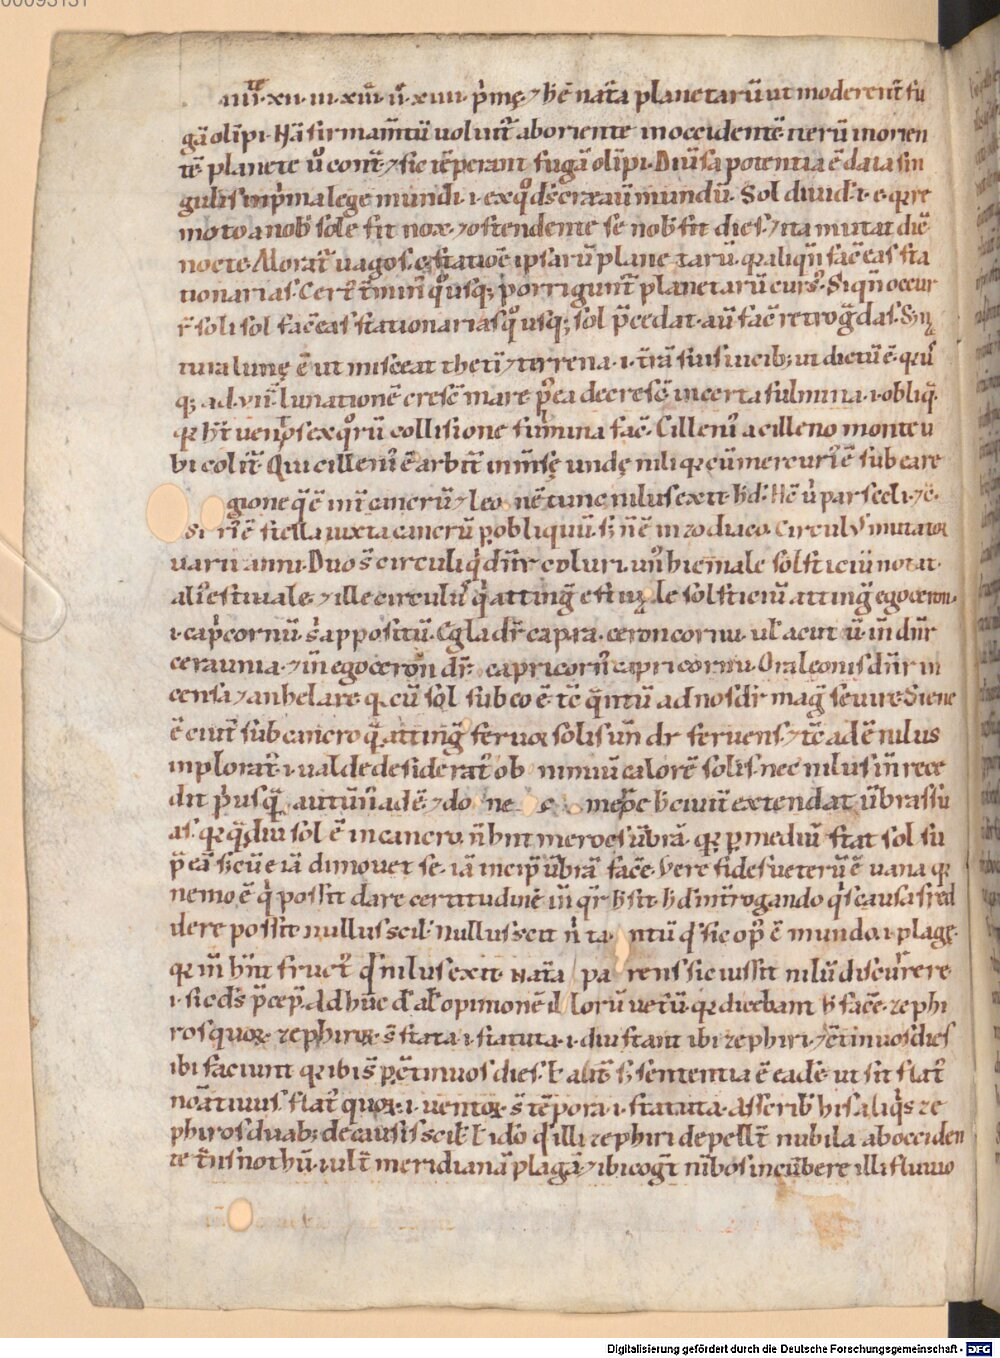 00093131
.iiii. xii. iii. xiii. ii. xiiii. p̄mę. ⁊ h̄c nat̄a planetarū ut moderent̄ fu
gā olīpi. Hā firmam̄tū uoluit̄ ab oriente in occidentē. uerū in orien
tē planete ů cont̄ ⁊ sic tēperant fugā olīpi. Diuͥsa potentia ē data sin
gulis in pͥma lege mundi .i. ex qͦ ds̄ creauit mundū. Sol diuidͭ .t. e. qr̄ re
moto a nob̄ sole fit nox. ⁊ ostendente se nob̄ fit dies. ⁊ ita mutat diē
nocte. Morat̄ uagos. ę statiōē ipsarū planetarū. qr̄ aliqn̄ fac̄ eas sta
tionarias. Cert̄ t̄minͥ qͦusq; porrigunt̄ planetarū cursͦ. Si qn̄ occur
r̄ soli sol fac̄ eas stationarias qͦusq; sol p̄cedat. aū fac̄ retrog̃das.
tura lunę ē ut misceat theti ⁊ terrena .i. t̄rā suis uicib; ut dictū ē. qn̄
q; ad .vii. lunationē cresc̄ mare pͦea decresc̄ incerta fulmina .i. obliq̄.
qr̄ hn̄t uenīs ex qͦrū collisione fulmina fac̄. Cilleniͦ a cilleno monte u
bi colit̄. Qui cilleniͦ ē arbit̄ in m̄sę undę nili qr̄ cū mercuriͦ ē sub ea re
gione q̄ ē int̄ cancrū ⁊ leonē tunc nilus exit. h̄ d̄. Hē ů pars celi. ⁊c̄.
Siriͦ ē stella iuxta cancrū p obliquū. s; n̄ ē in zodiaco. Circulus mutator
uarii anni. Duo s̄ circuli qͥ dn̄r coluri. unͦ hiemale solsticiū notat.
aliͦ estiuale. ⁊ ille circulͦ qͥ atting̃ estiuale solsticiū atting̃ egoceron.
.i. capͥcornū. sͥ appositū. Egla dr̄ capra. ceron cornu. ul̄ acut ū. in̄ dn̄r
ceraunia. ⁊ in̄ egoceron dr̄. capricornͦ capri cornu. Ora leonis dn̄r in
censa ⁊ anhelare. qr̄ cū sol sub eo ē. tc̄ q̄ntū ad nos dr̄ mag̃ seuire. Siene
ē ciuit̄ sub cancro q̄ atting̃ feruor solis un̄ dr̄ feruens. ⁊ tc̄ ad ē nilus
inplorat̄ .i. ualde desiderat̄ ob nimiū calorē solis. nec nilus in̄ rece
dit pͥusq̄ autūn̄ ad ē. ⁊ donec meroe h̄ ciuit̄ extendat ūbras su
as. qr̄ q̄diu sol ē in cancro. n̄ hn̄t meroes ūbrā. qr̄ p mediū stat sol su
p̄ eā s; cū eiā dimouet se. iā incip̄ ūbrā fac̄e. Vere fides ueterū ē uana qr̄
nemo ē qͥ possit dare certitudinē in̄ qr̄ h̄ sit. h̄ d̄ int̄rogando qͥs causas red
dere possit nullus scil̄. nullus scit n̄ tantū qͩ sic opͦ ē mundo .i. plagę.
qr̄ in̄ hn̄t fructͦ qͩ nilus exit. Nat̄a parens sic iussit nilū discurrere
.i. sic ds̄ p̄cep̄. Ad hūc d̄ al̄ opinionē illorū uet̄ū. qr̄ dicebant h̄ fac̄e. zephi
ros quor̨ zephiror̨ s̄ stata .i. statuta .i. diu stant ibi zephiri. ⁊ c̄tinuos dies
ibi faciunt qr̄ ibi s̄ p̄ c̄tinuos dies. ł alit̄ s; sententia ē eadē. ut sit flatͦ
noātiuus. flatͦ quor̨ .i. uentor̨ s̄ tēpora .i. statuta. Asscrib̄ his aliqͥs ze
phiros duab; de causis scil̄ ł idͦ qͩ illi zephiri depell̄t nubila ab occiden
te t̄ris nothū .i. ult̄ meridianā plagā ⁊ ibi cog̃t nībos incūbere illi fluuio
Digitalisierung gefördert durch die Deutsche Forschungsgemeinschaft - DFG